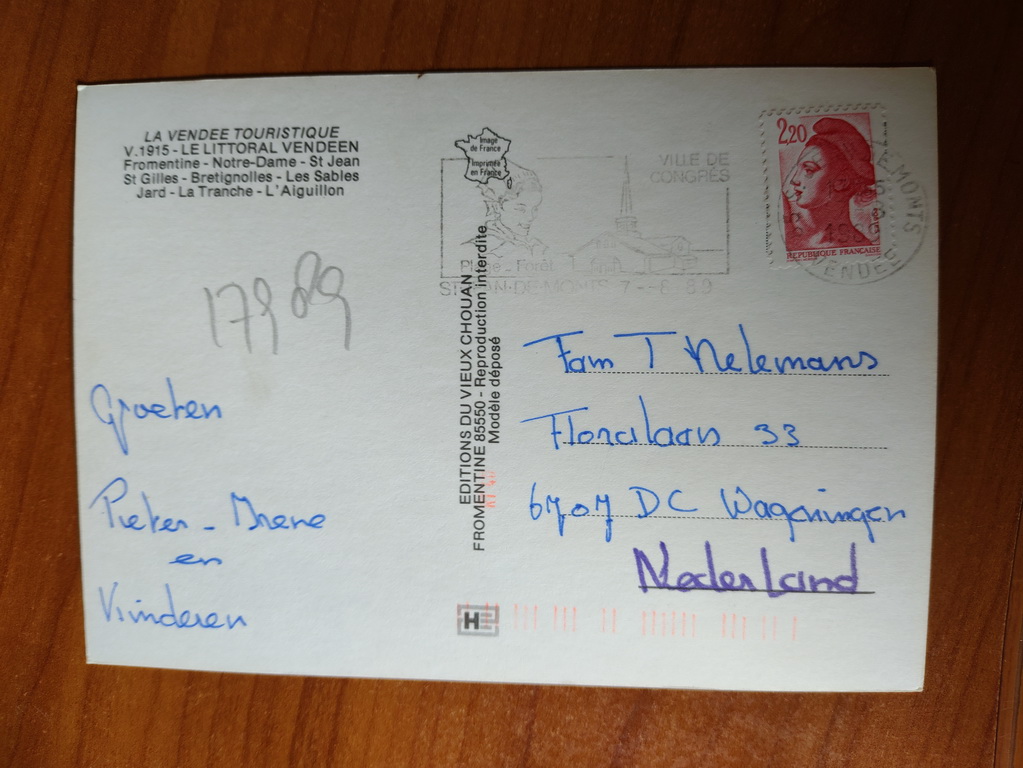 LA VENDEE TOURISTIQUE
V.1915 - LE LITTORAL VENDEEN
Fromentine - Notre-Dame - St Jean
St Gilles - Bretignolles - Les Sables
Jard - La Tranche - L'Aiguillon
17989
Groeten
Pieter - Irene
en
Kinderen
Image
de France
Imprimée
en France
EDITIONS DU VIEUX CHOUAN
FROMENTINE 85550 - Reproduction interdite
Modèle déposé
VILLE DE
CONGRÈS
Plage - Forêt
ST JEAN-DE-MONTS 7 - 8 89
2,20
REPUBLIQUE FRANÇAISE
MONTS
VENDEE
Fam T Nelemans
Floralaan 33
6707 DC Wageningen
Nederland
H